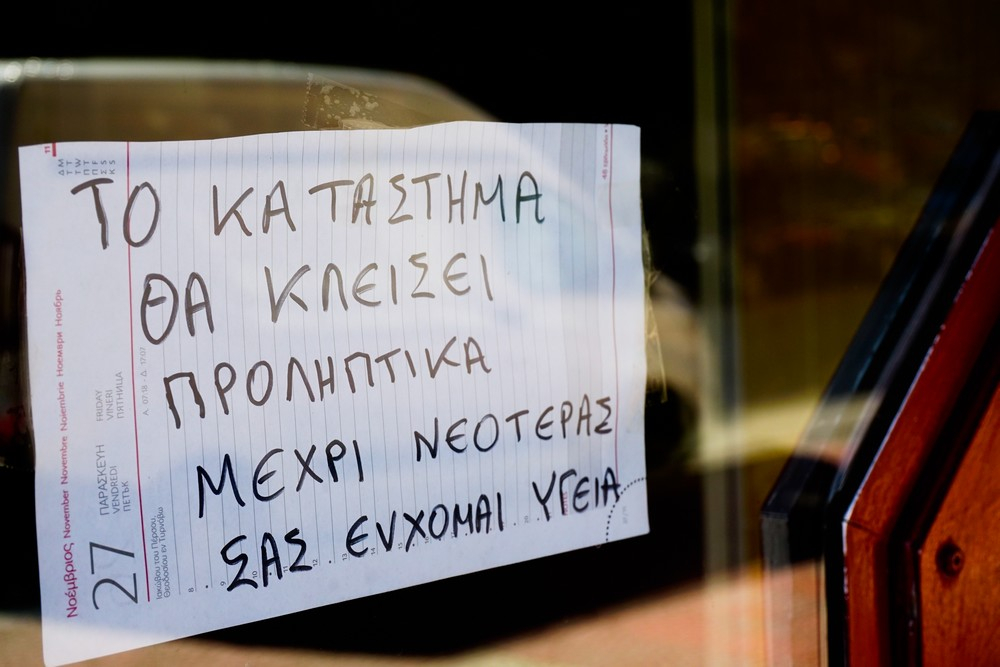 ΤΟ ΚΑΤΑΣΤΗΜΑ
ΘΑ ΚΛΕΙΣΕΙ
ΠΡΟΛΗΠΤΙΚΑ
ΜΕΧΡΙ ΝΕΟΤΕΡΑΣ
ΣΑΣ ΕΥΧΟΜΑΙ ΥΓΕΙΑ
Νοέμβριος November Novembre Noiembrie Ноември Ноябрь
27
ΠΑΡΑΣΚΕΥΗ FRIDAY
VENDREDI VINERI
ПЕТЪК ПЯТНИЦА
Ιακώβου του Πέρσου,
Θεοδοσίου εν Τυρνόβω